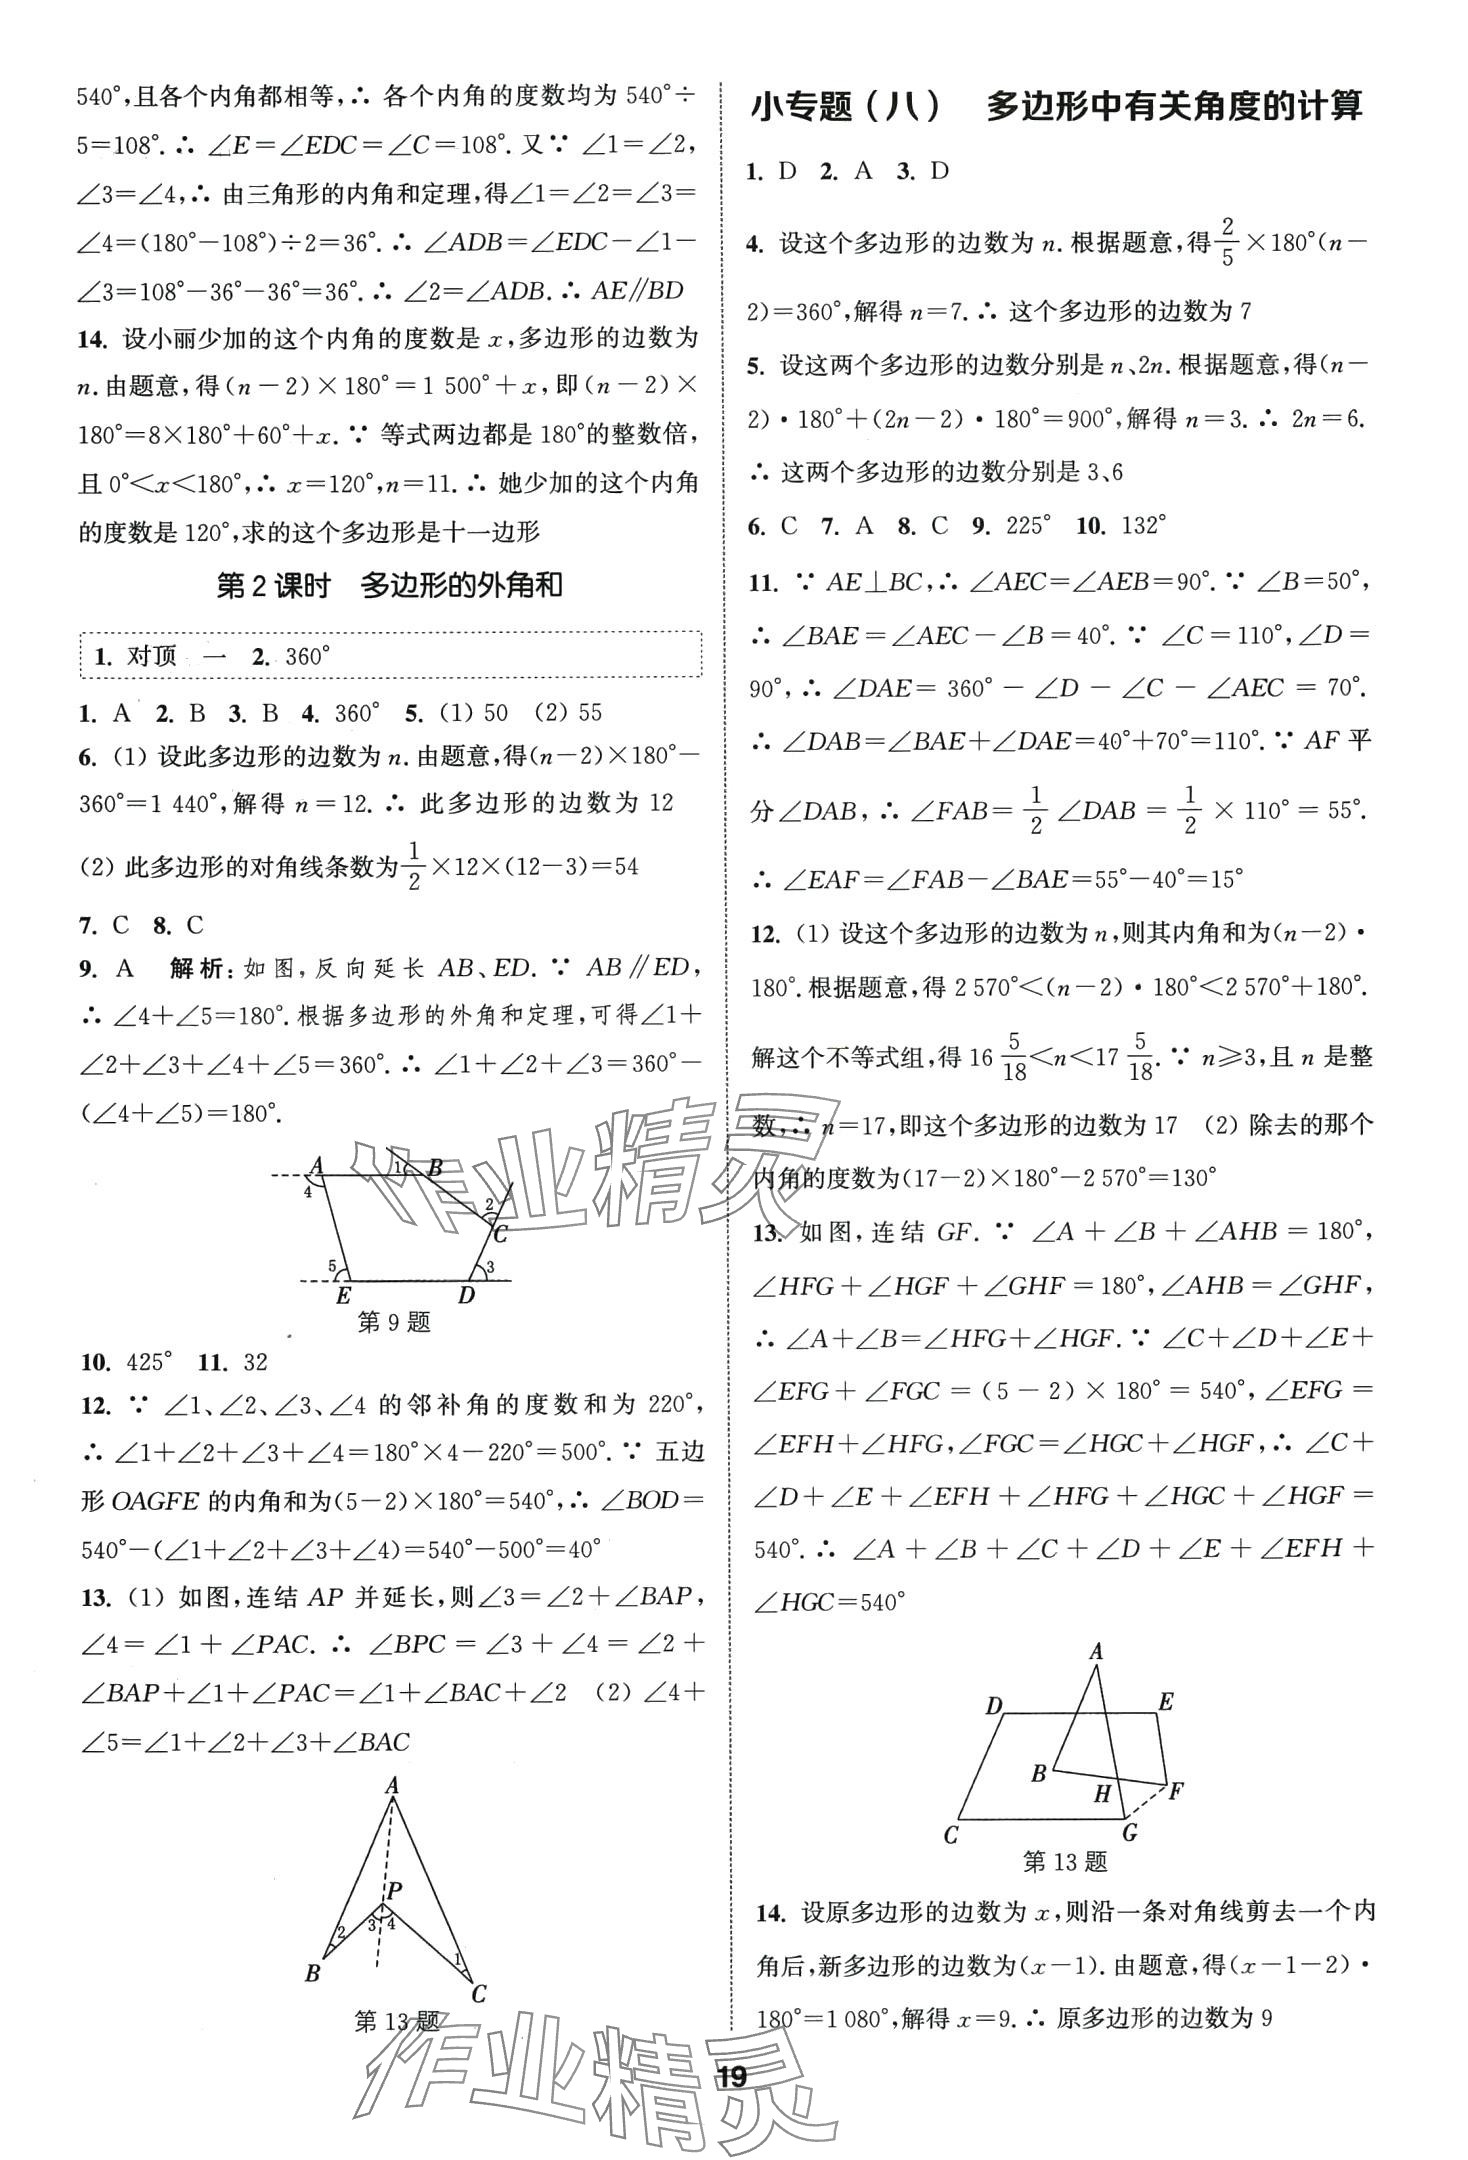 540°,且各个内角都相等,∴ 各个内角的度数均为 540°÷
5=108°.∴ ∠E=∠EDC=∠C=108°.又∵ ∠1=∠2,
∠3=∠4,∴ 由三角形的内角和定理,得∠1=∠2=∠3=
∠4=(180°-108°)÷2=36°.∴ ∠ADB=∠EDC-∠1-
∠3=108°-36°-36°=36°.∴ ∠2=∠ADB.∴ AE∥BD
14. 设小丽少加的这个内角的度数是 x,多边形的边数为
n.由题意,得(n-2)×180°=1 500°+x,即(n-2)×
180°=8×180°+60°+x.∵ 等式两边都是 180°的整数倍,
且 0°<x<180°,∴ x=120°,n=11.∴ 她少加的这个内角
的度数是 120°,求的这个多边形是十一边形
第 2 课时 多边形的外角和
1. 对顶 一 2. 360°
1. A 2. B 3. B 4. 360° 5. (1) 50 (2) 55
6. (1) 设此多边形的边数为 n.由题意,得(n-2)×180°-
360°=1 440°,解得 n=12.∴ 此多边形的边数为 12
(2) 此多边形的对角线条数为1/2×12×(12-3)=54
7. C 8. C
9. A 解析:如图,反向延长 AB、ED.∵ AB∥ED,
∴ ∠4+∠5=180°.根据多边形的外角和定理,可得∠1+
∠2+∠3+∠4+∠5=360°.∴ ∠1+∠2+∠3=360°-
(∠4+∠5)=180°.
A 1 B
4
2
C
5 3
E D
第 9 题
10. 425° 11. 32
12. ∵ ∠1、∠2、∠3、∠4 的邻补角的度数和为 220°,
∴ ∠1+∠2+∠3+∠4=180°×4-220°=500°.∵ 五边
形 OAGFE 的内角和为(5-2)×180°=540°,∴ ∠BOD=
540°-(∠1+∠2+∠3+∠4)=540°-500°=40°
13. (1) 如图,连结 AP 并延长,则∠3=∠2+∠BAP,
∠4=∠1+∠PAC.∴ ∠BPC=∠3+∠4=∠2+
∠BAP+∠1+∠PAC=∠1+∠BAC+∠2 (2) ∠4+
∠5=∠1+∠2+∠3+∠BAC
A
P
2 3 4
1
B
C
第 13 题
小专题(八) 多边形中有关角度的计算
1. D 2. A 3. D
4. 设这个多边形的边数为 n.根据题意,得2/5×180°(n-
2)=360°,解得 n=7.∴ 这个多边形的边数为 7
5. 设这两个多边形的边数分别是 n、2n.根据题意,得(n-
2)·180°+(2n-2)·180°=900°,解得 n=3.∴ 2n=6.
∴ 这两个多边形的边数分别是 3、6
6. C 7. A 8. C 9. 225° 10. 132°
11. ∵ AE⊥BC,∴ ∠AEC=∠AEB=90°.∵ ∠B=50°,
∴ ∠BAE=∠AEC-∠B=40°.∵ ∠C=110°,∠D=
90°,∴ ∠DAE=360°-∠D-∠C-∠AEC=70°.
∴ ∠DAB=∠BAE+∠DAE=40°+70°=110°.∵ AF 平
分∠DAB,∴ ∠FAB=1/2∠DAB=1/2×110°=55°.
∴ ∠EAF=∠FAB-∠BAE=55°-40°=15°
12. (1) 设这个多边形的边数为 n,则其内角和为(n-2)·
180°.根据题意,得 2 570°<(n-2)·180°<2 570°+180°.
解这个不等式组,得 16 5/18<n<17 5/18.∵ n≥3,且 n 是整
数,∴ n=17,即这个多边形的边数为 17 (2) 除去的那个
内角的度数为(17-2)×180°-2 570°=130°
13. 如图,连结 GF.∵ ∠A+∠B+∠AHB=180°,
∠HFG+∠HGF+∠GHF=180°,∠AHB=∠GHF,
∴ ∠A+∠B=∠HFG+∠HGF.∵ ∠C+∠D+∠E+
∠EFG+∠FGC=(5-2)×180°=540°,∠EFG=
∠EFH+∠HFG,∠FGC=∠HGC+∠HGF,∴ ∠C+
∠D+∠E+∠EFH+∠HFG+∠HGC+∠HGF=
540°.∴ ∠A+∠B+∠C+∠D+∠E+∠EFH+
∠HGC=540°
A
D E
B H F
C G
第 13 题
14. 设原多边形的边数为 x,则沿一条对角线剪去一个内
角后,新多边形的边数为(x-1).由题意,得(x-1-2)·
180°=1 080°,解得 x=9.∴ 原多边形的边数为 9
19
作业精灵
作业精灵